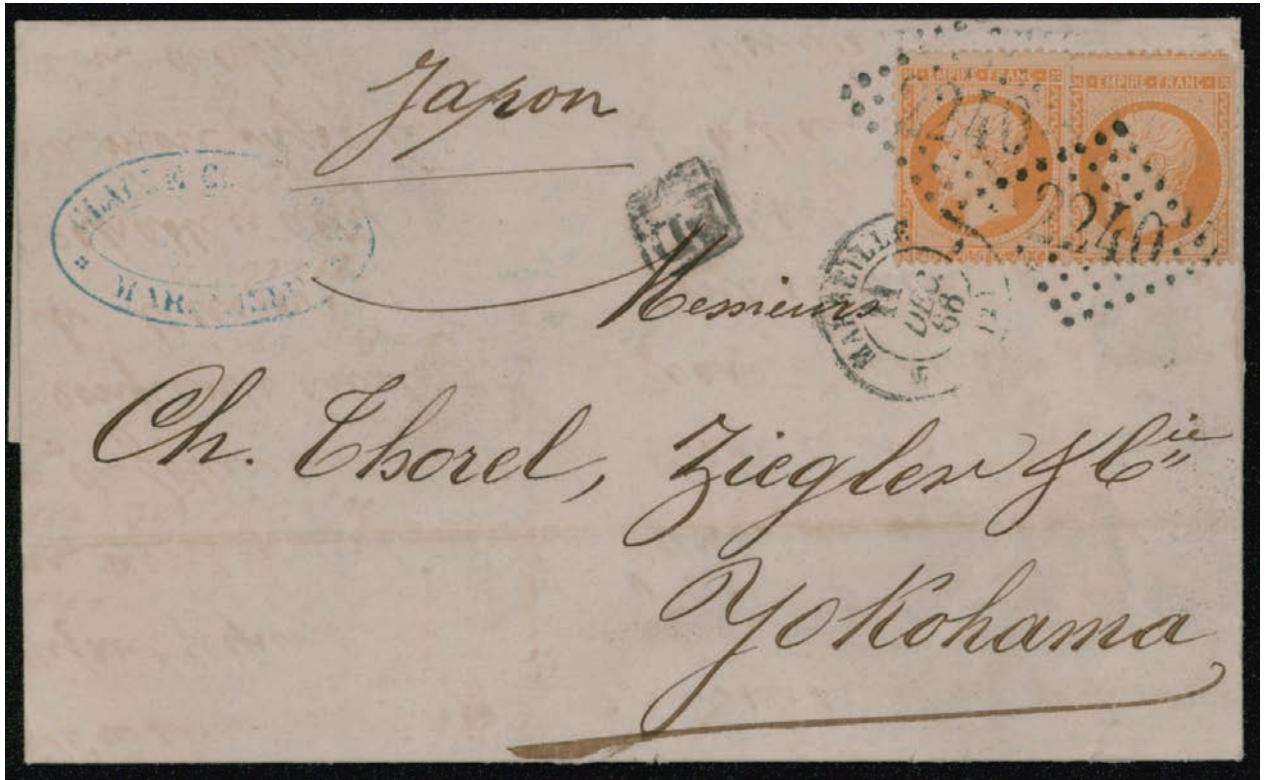 Japon
EMPIRE FRANC
EMPIRE FRANC
2240
2240
MARSEILLE
11
DEC
68
Messieurs
Ch. Thorel, Ziegler & Cie
Yokohama